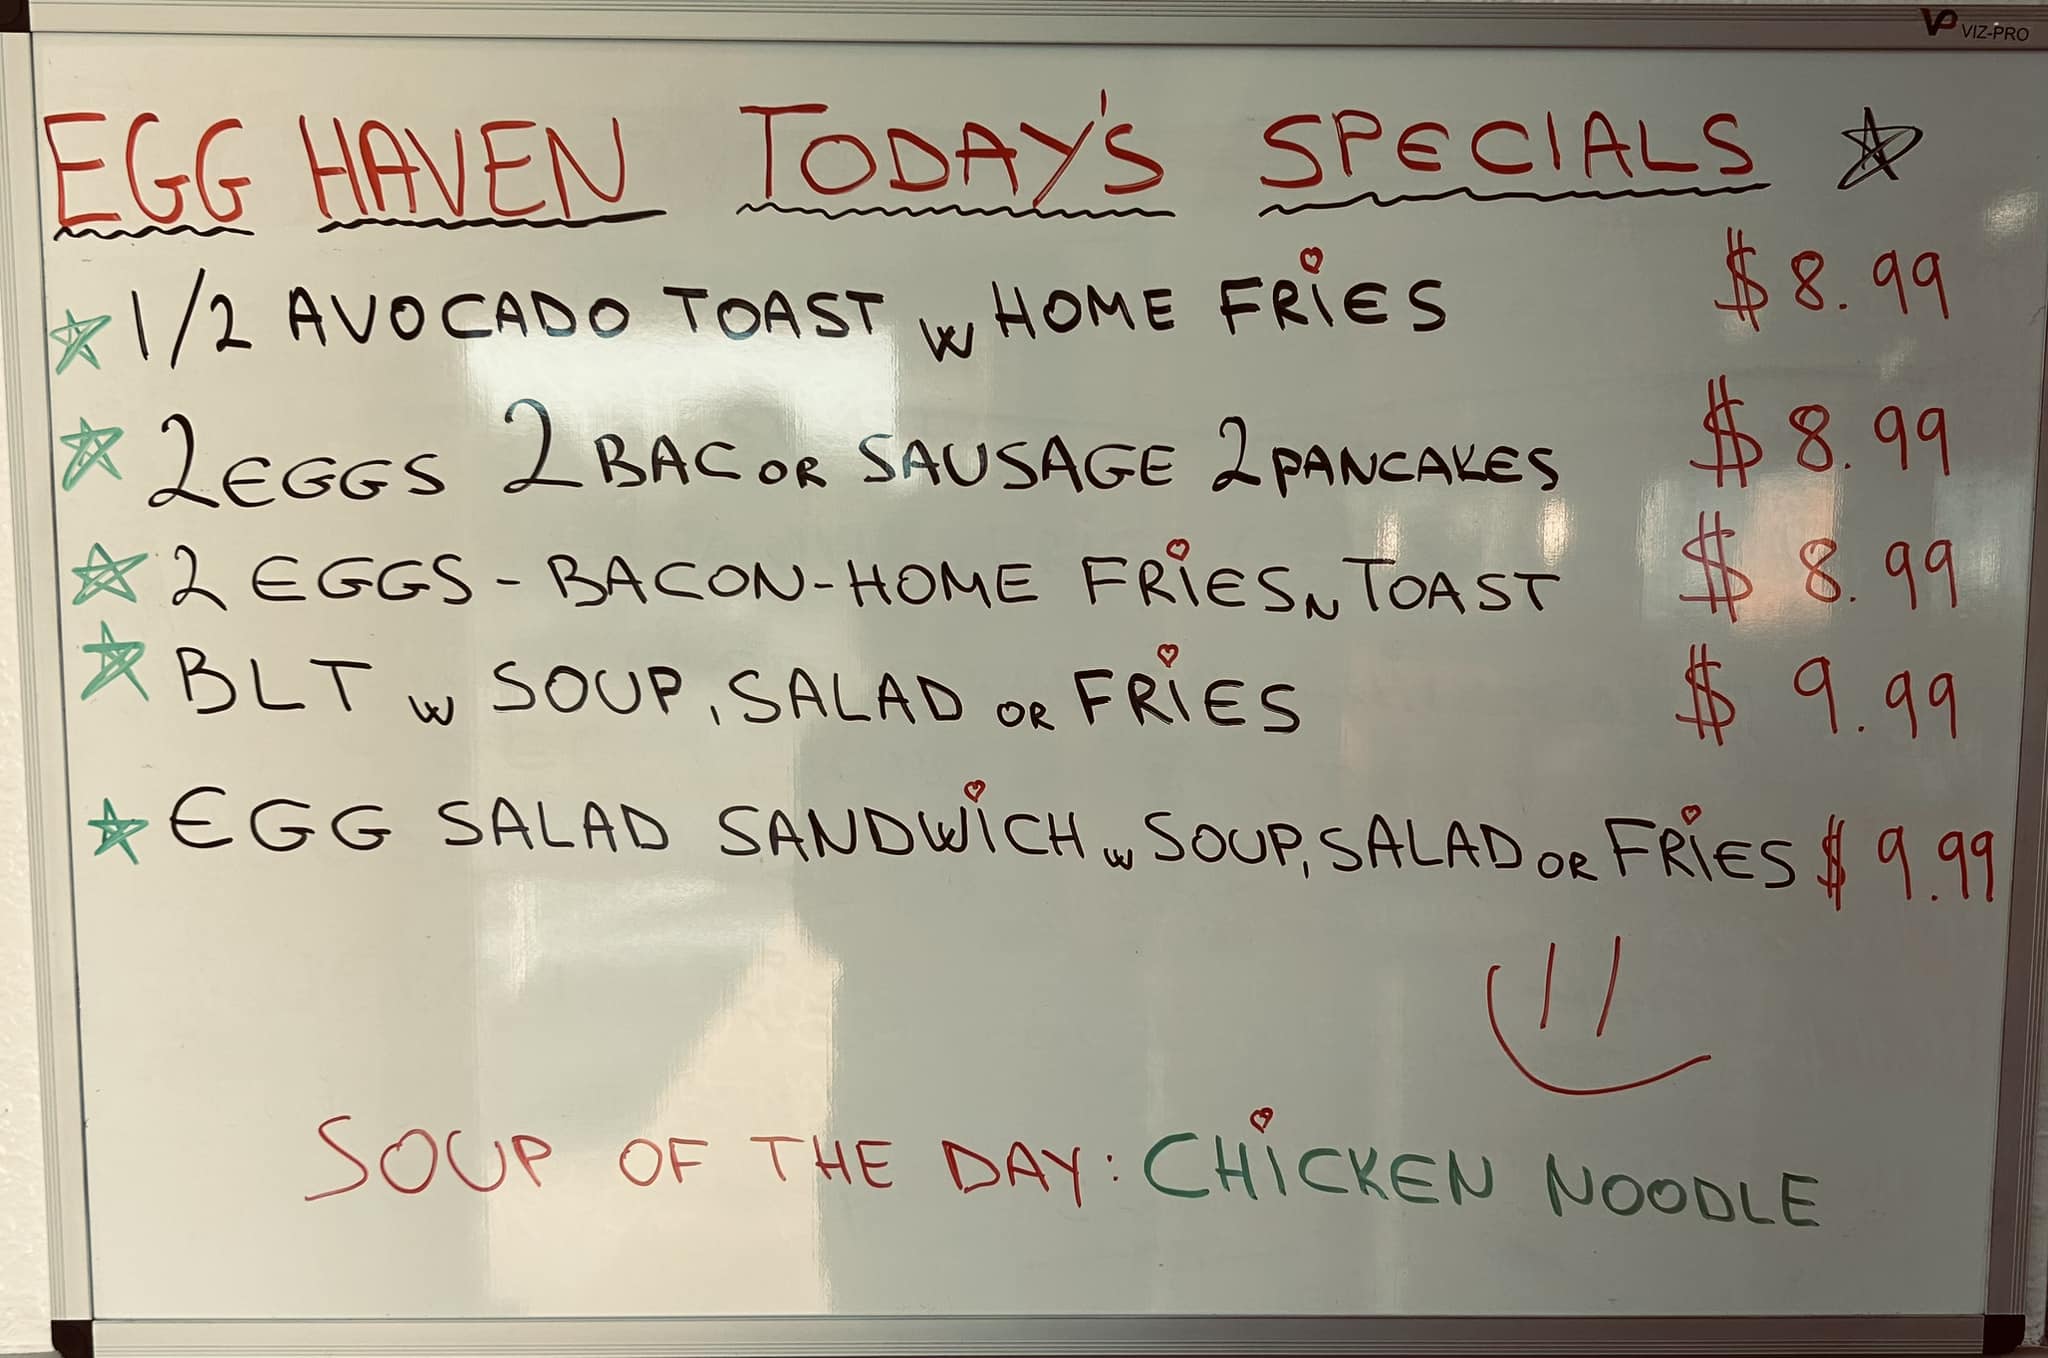 VP VIZ-PRO
EGG HAVEN TODAY'S SPECIALS
1/2 AVOCADO TOAST W HOME FRIES $8.99
2 EGGS 2 BAC OR SAUSAGE 2 PANCAKES $8.99
2 EGGS - BACON - HOME FRIES N TOAST $8.99
BLT W SOUP, SALAD OR FRIES $9.99
EGG SALAD SANDWICH W SOUP, SALAD OR FRIES $9.99
SOUP OF THE DAY: CHICKEN NOODLE